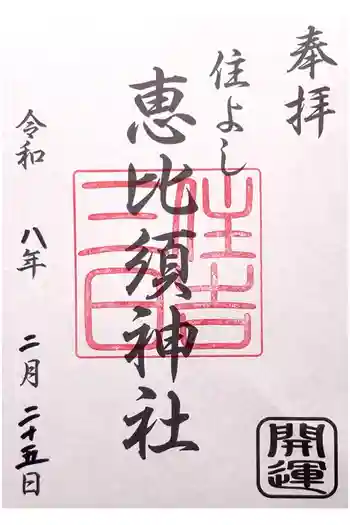 奉拝
住よし
恵比須神社
令和 八年 二月 二十五日
開運